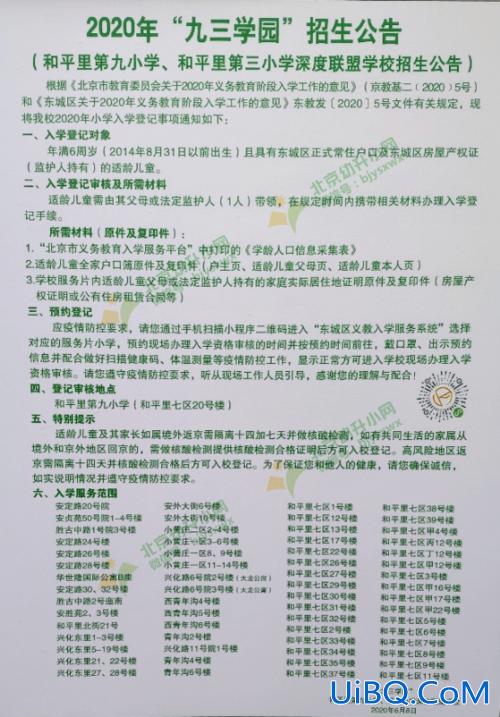 2020年“九三学园”招生公告
(和平里第九小学、和平里第三小学深度联盟学校招生公告)
根据《北京市教育委员会关于2020年义务教育阶段入学工作的意见》(京教基二〔2020〕5号)
和《东城区关于2020年义务教育阶段入学工作的意见》东教发〔2020〕5号文件有关规定,现
将我校2020年小学入学登记事项通知如下:
一、入学登记对象
年满6周岁(2014年8月31日以前出生)且具有东城区正式常住户口及东城区房屋产权证
(监护人持有)的适龄儿童。
二、入学登记审核及所需材料
适龄儿童需由其父母或法定监护人(1人)带领,在规定时间内携带相关材料办理入学登
记手续。
所需材料(原件及复印件):
1.“北京市义务教育入学服务平台”中打印的《学龄人口信息采集表》
2.适龄儿童全家户口簿原件及复印件(户主页、适龄儿童父母页、适龄儿童本人页)
3.学校服务片内适龄儿童父母或法定监护人持有的家庭实际居住地证明原件及复印件(房屋产
权证明或公有住房租赁合同等)
三、预约登记
应疫情防控要求,请您通过手机扫描小程序二维码进入“东城区义教入学服务系统”选择
对应的服务片小学,预约现场办理入学资格审核的时间并按预约时间前往,戴口罩、出示预约
信息并配合做好扫描健康码、体温测量等疫情防控工作,显示正常方可进入学校现场办理入学
资格审核。请您遵守疫情防控要求,听从现场工作人员引导,感谢您的理解与配合!
四、登记审核地点
和平里第九小学(和平里七区20号楼)
五、特别提示
适龄儿童及其家长如属境外返京需隔离十四加七天并做核酸检测,如有共同生活的家属从
境外和京外地区回京的,需做核酸检测提供核酸检测合格证明后方可入校登记。高风险地区返
京需隔离十四天并核酸检测合格后方可入校登记。为了保证您和他人的健康,请您确保诚信,
如实说明情况并遵守疫情防控要求。
六、入学服务范围
安定路20号院 安外大街6号楼 和平里七区1号楼 和平里七区38号楼
安贞苑50号院1-4号楼 安外大街10号楼 和平里七区12号楼 和平里七区39号楼
胜古中路1号院3号楼 小黄庄二区2-4号楼 和平里七区13号楼 和平里七区4号楼
安定路24号楼 小黄庄一区3-6号楼 和平里七区17号楼 和平里七区丙12号楼
安定路26号楼 小黄庄一区8、9号楼 和平里七区18号楼 和平里七区丁12号楼
安定路28号楼 小黄庄一区11-14号楼 和平里七区19号楼 和平里七区甲12号楼
华世隆国际公寓B座 兴化路6号院2号楼(大龙公寓) 和平里七区27号楼 和平里七区3号楼
安定路30、32号楼 兴化路6号院3号楼(大龙公寓) 和平里七区28号楼 和平里七区甲16号楼
胜古中路2号迤南 西青年沟4号楼 和平里七区29号楼 和平里七区甲17号楼
安胜苑2、3号楼 西青年沟5号楼 和平里七区31号楼 和平里七区甲22号楼
和平里北街21号 西青年沟6号楼 和平里七区32号楼 和平里七区5号楼
兴化东里1-3号楼 青年沟2号楼 和平里七区33号楼 和平里七区6号楼
兴化东里5-19号楼 兴化路11号院1号楼 和平里七区34号楼 和平里七区7号楼
兴化东里21、22号楼 青年沟26号楼 和平里七区36号楼 和平里七区9号楼
兴化东里27、28号楼 青年沟28号楼 和平里七区37号楼 和平里七区11号楼
2020年6月8日
北京幼升小网
微信号:bjysxwx
UiBQ.CoM